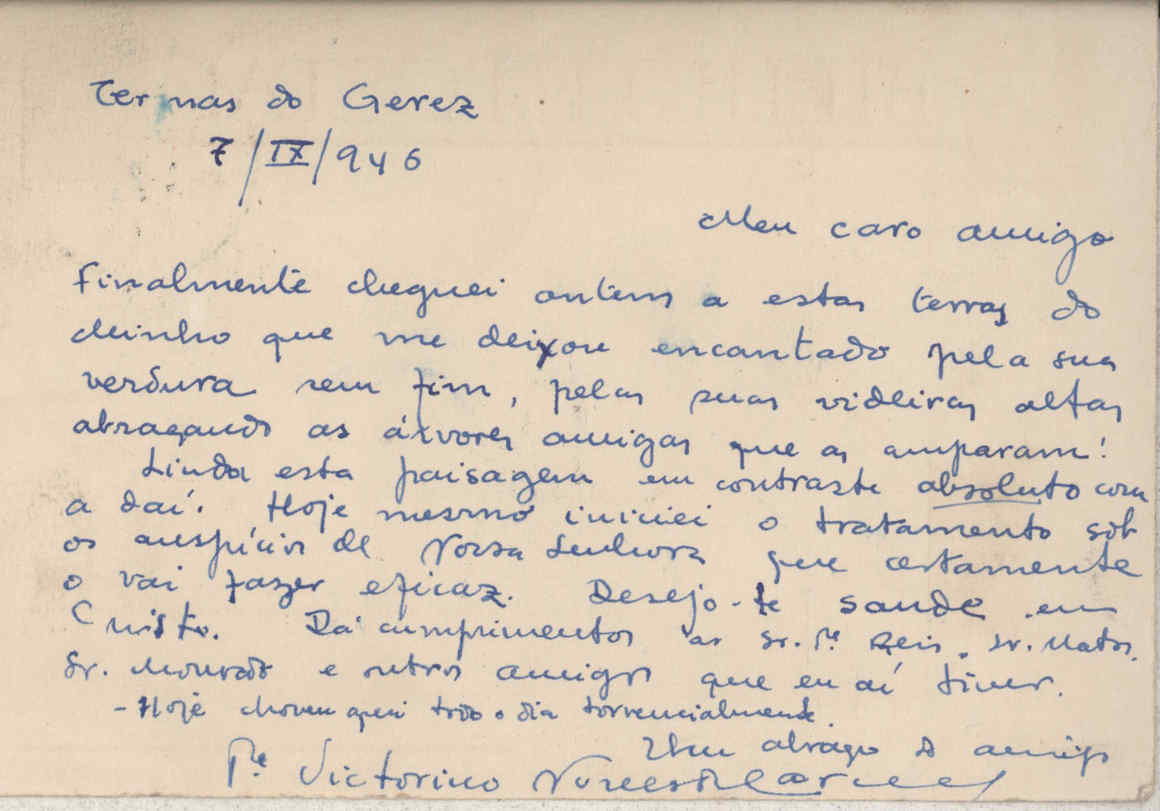 Termas do Gerez
7/IX/946
Meu caro amigo
Finalmente cheguei ontem a estas terras do
Minho que me deixou encantado pela sua
verdura sem fim, pelas suas videiras altas
abraçando as árvores amigas que as amparam!
Linda esta paisagem em contraste absoluto com
a daí. Hoje mesmo iniciei o tratamento sob
os auspícios de Nossa Senhora que certamente
o vai fazer eficaz. Desejo-te saude em
Cristo. Dá cumprimentos ao Sr. Pe. Reis, Sr. Matos,
Sr. Mourato e outros amigos que eu aí tiver.
- Hoje choveu quasi todo o dia torrencialmente.
Um abraço do amigo
Pe. Victorino Nunes